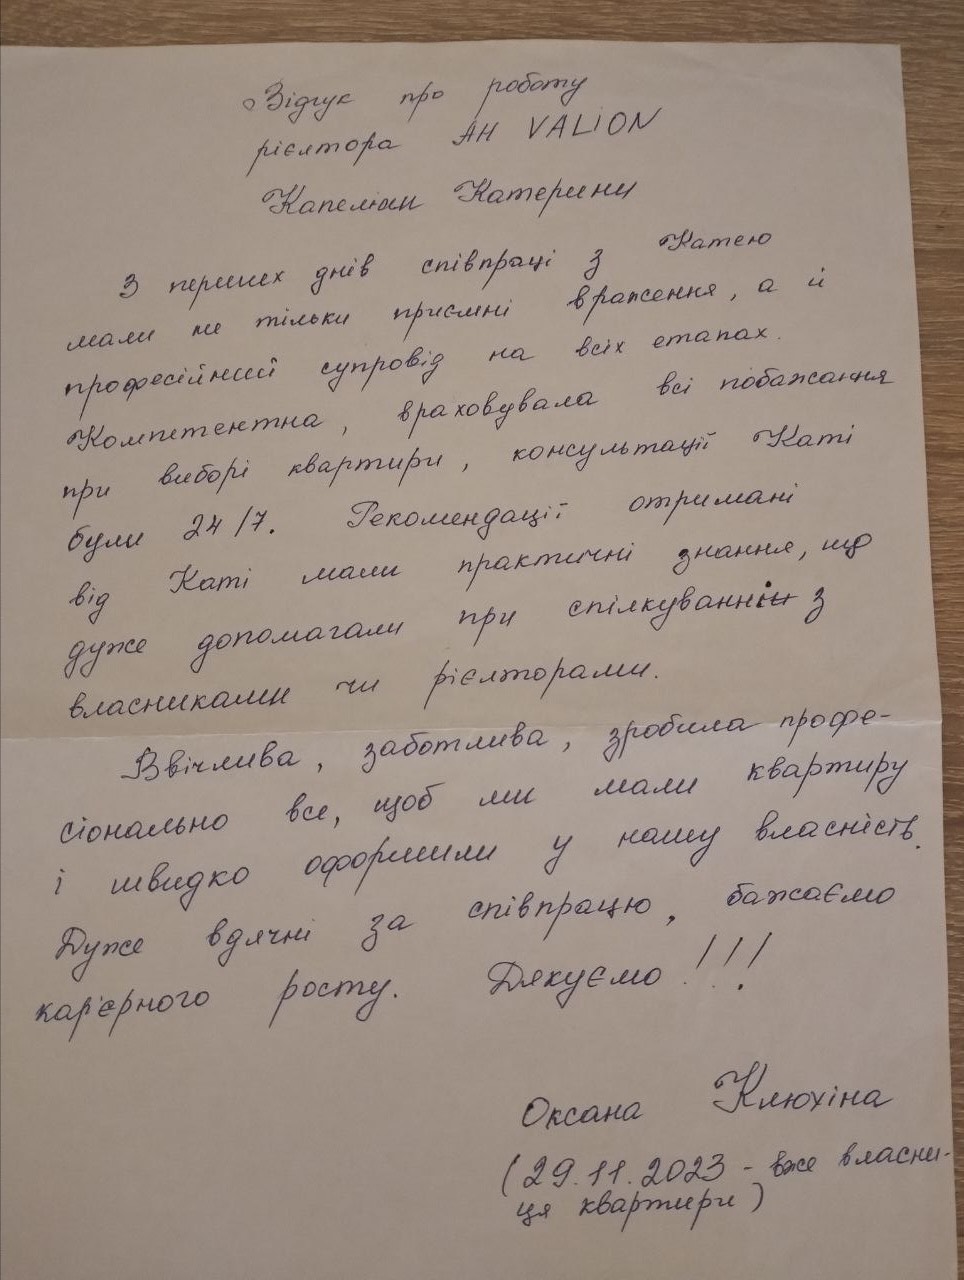 Відгук про роботу
рієлтора АН VALION
Капеліан Катерини
З перших днів співпраці з Катею
мали не тільки приємні враження, а й
професійний супровід на всіх етапах.
Компетентна, враховувала всі побажання
при виборі квартири, консультації Каті
були 24/7. Рекомендації отримані
від Каті мали практичні знання, що
дуже допомагали при спілкуванні з
власниками чи рієлторами.
Ввічлива, заботлива, зробила профе-
сіонально все, щоб ми мали квартиру
і швидко оформили у нашу власність.
Дуже вдячні за співпрацю, бажаємо
кар'єрного росту. Дякуємо!!!
Оксана Клюхіна
(29.11.2023 - вже власни-
ця квартири)